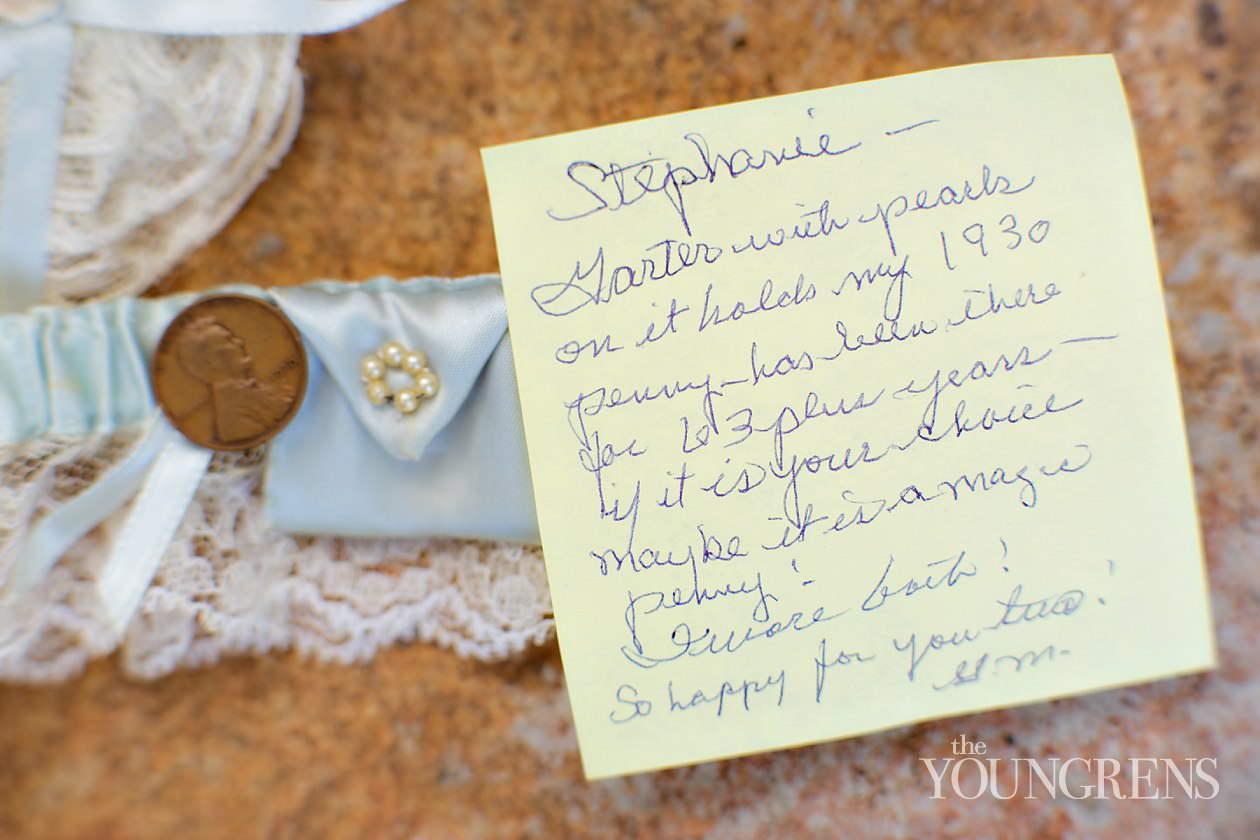 Stephanie —
Garter with pearls
on it holds my 1930
penny - has been there
for 63 plus years —
if it is your choice
maybe it is a magic
penny!
I wore both!
So happy for you two!
G.M.
the
YOUNGRENS